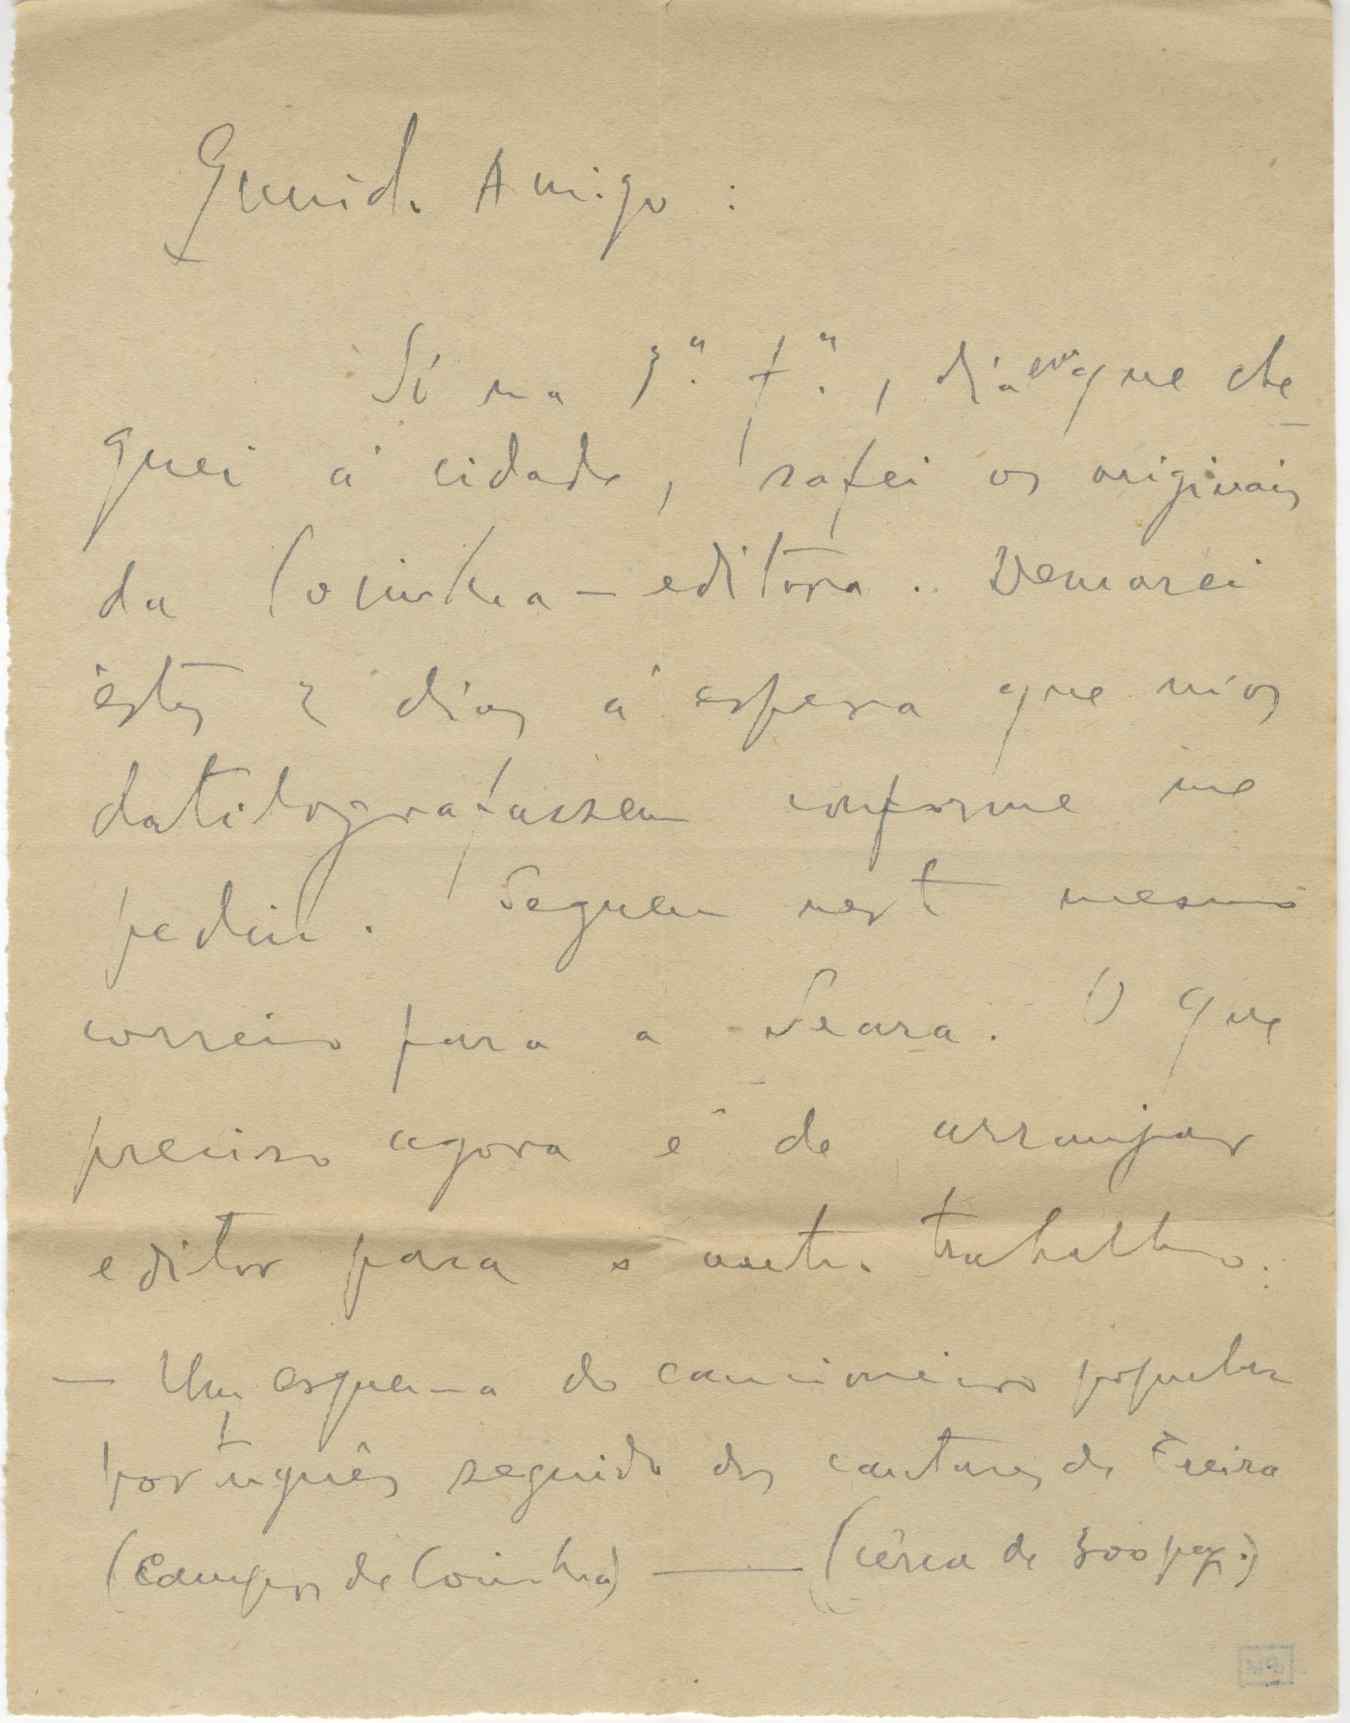 Querido Amigo:
Só na 3.ª f.ª, dia em que che
guei á cidade, safei os originais
da Coimbra-editora. Demorei
êstes 2 dias á espera que m'os
datilografassem conforme me
pediu. Seguem neste mesmo
correio para a Seara. O que
preciso agora é de arranjar
editor para o outro trabalho:
— Um esquema do cancioneiro popular
português seguido dos cantares de Freira
(Campos de Coimbra) — (cêrca de 300 pag.)